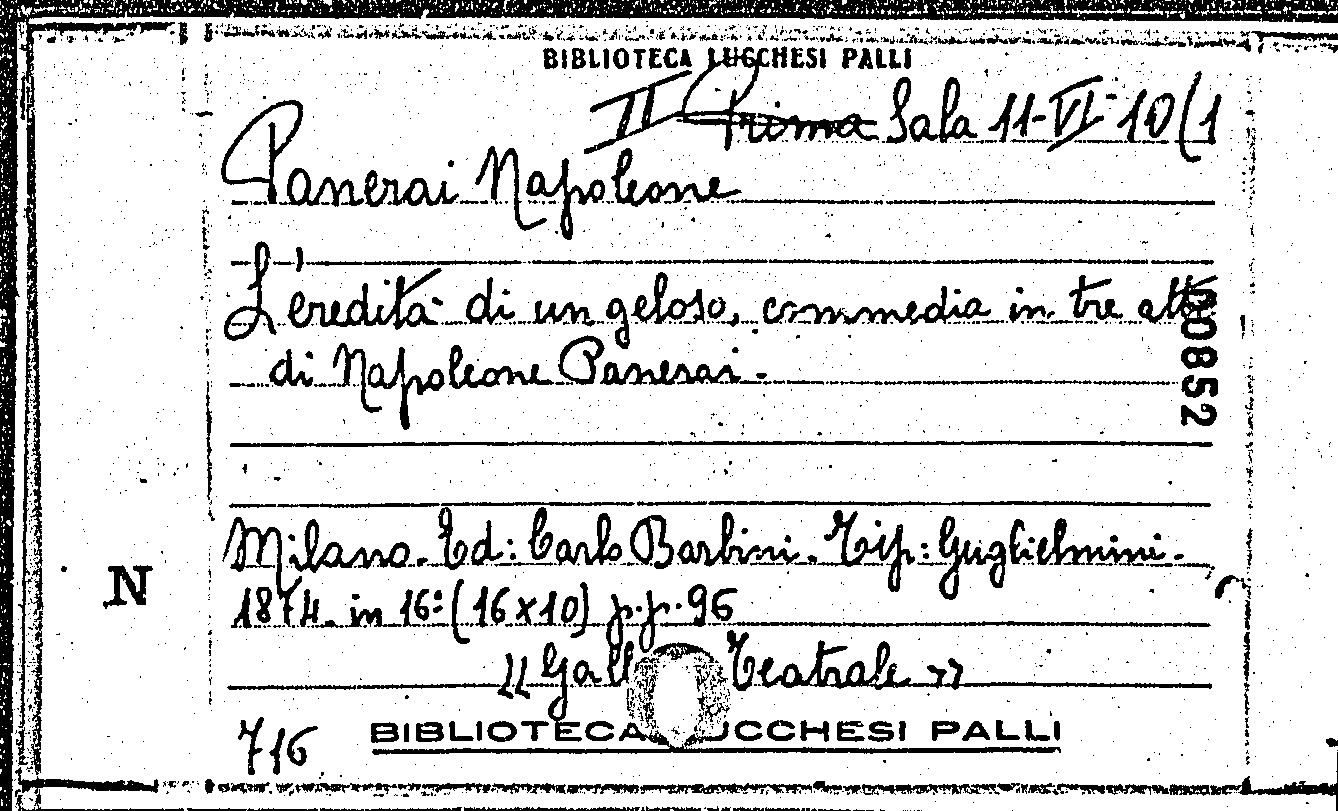 BIBLIOTECA LUCCHESI PALLI
II Prima Sala 11-VI-10(1
Panerai Napoleone
L'eredità di un geloso, commedia in tre atti
di Napoleone Panerai.
00852
Milano. Ed: Carlo Barbini. Tip: Guglielmini.
N
1874. in 16º (16x10) p.p. 96
"Gall Teatrale"
716
BIBLIOTECA LUCCHESI PALLI